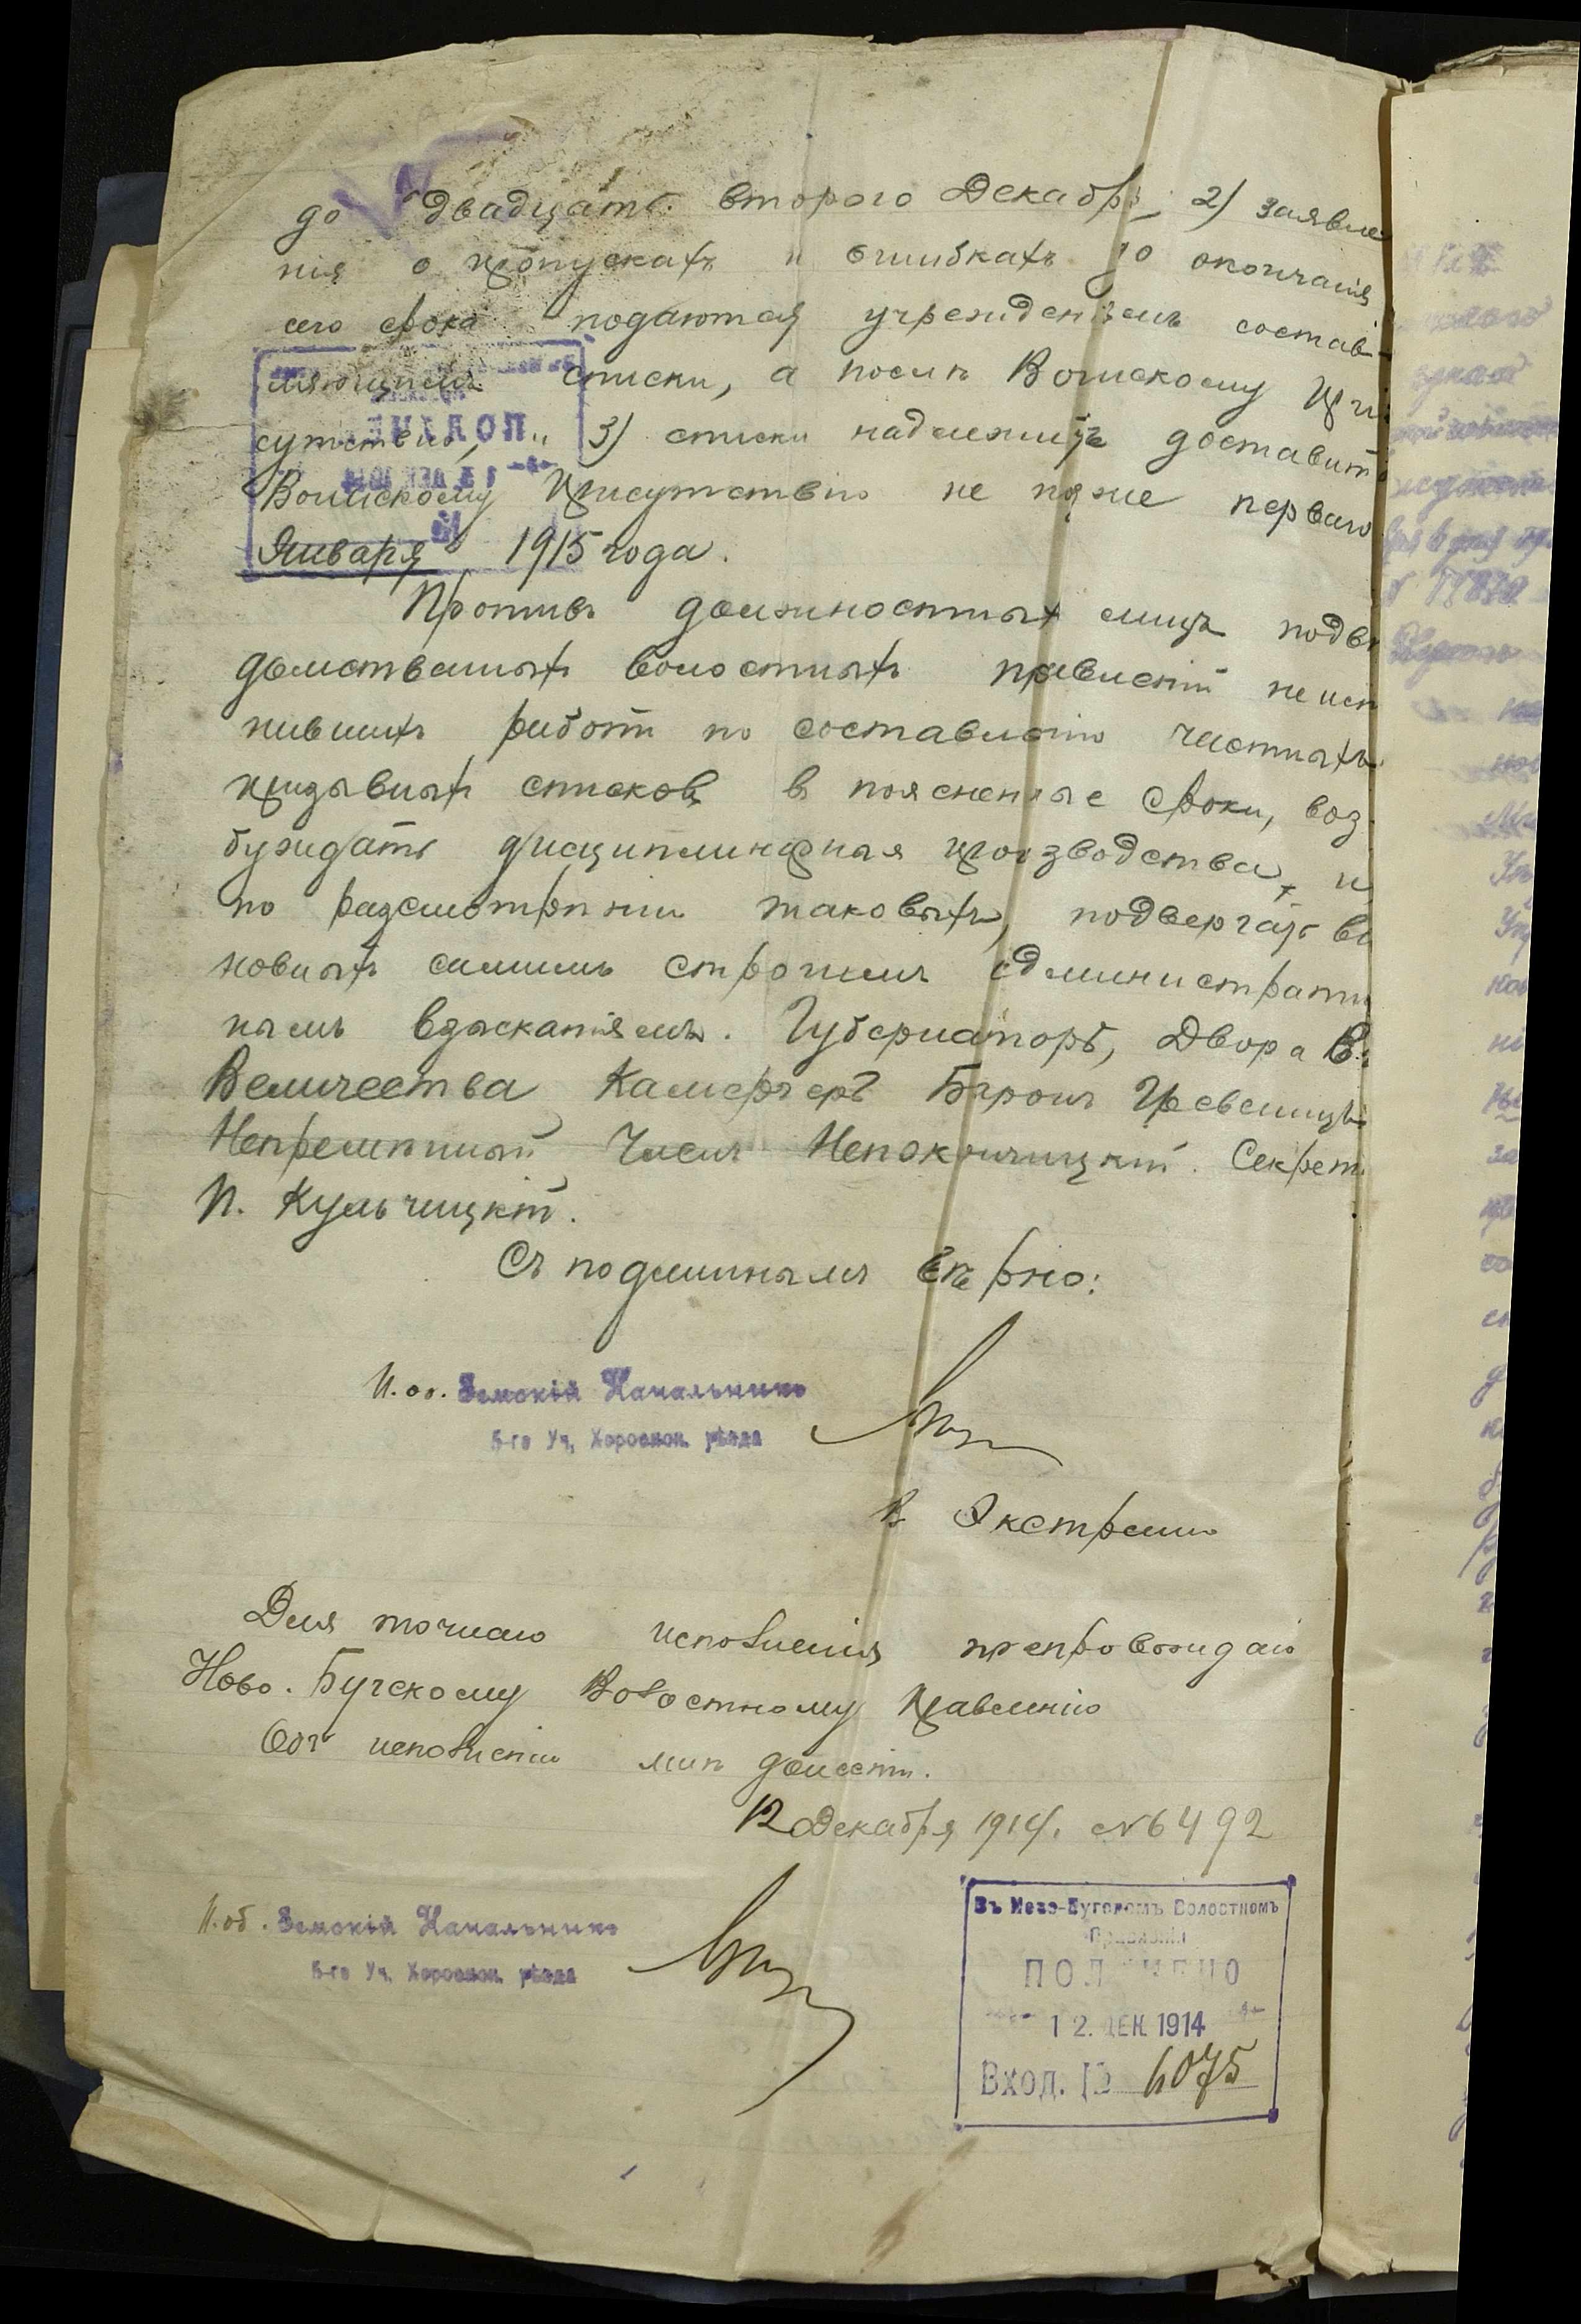 до двадцать второго Декабря, 2) заявле
нія о пропускахъ и ошибкахъ до окончанія
сего срока подаются учрежденіямъ состав-
ляющимъ списки, а послѣ Воинскому При
сутствію, 3) списки надлежитъ доставить
Воинскому Присутствію не позже перваго
Января 1915 года.
Противъ должностныхъ лицъ подвѣ
домственныхъ волостныхъ правленій неисп
нившихъ работъ по составленію частныхъ
призывныхъ списковъ въ поясненные сроки, воз-
буждать дисциплинарная производства, и
по разсмотрѣніи таковыхъ, подвергать ви
новныхъ самымъ строгимъ администрати
нымъ взысканіямъ. Губернаторъ, Двора Е.
Величества Камергеръ Баронъ Гревеницъ
Непремѣнный Членъ Непокойчицкій. Секрет.
П. Кульчицкій.
Съ подлиннымъ вѣрно:
И. об. Земскій Начальникъ
5-го Уч. Херсонск. уѣзда
В. Экстренно
Для точнаго исполненія препровождаю
Ново-Бугскому Волостному Правленію
Объ исполненіи мнѣ донести.
12 Декабря 1914. № 6492
И. об. Земскій Начальникъ
5-го Уч. Херсонск. уѣзда
Въ Ново-Бугскомъ Волостномъ
Правленіи
ПОЛУЧЕНО
12. ДЕК. 1914
Вход. № 6075